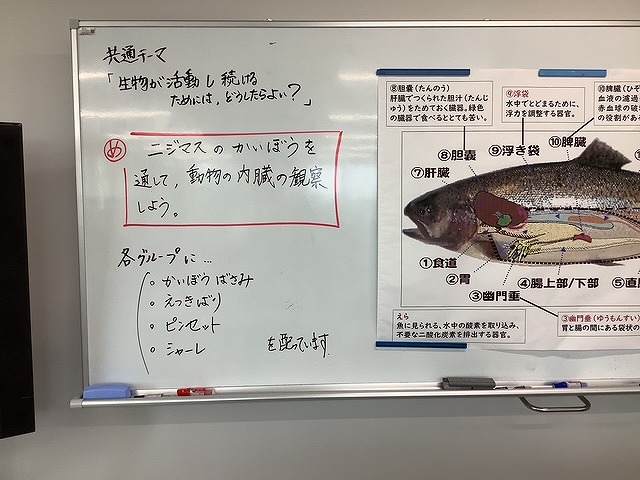 共通テーマ
「生物が活動し続ける
ためには，どうしたらよい？」
め ニジマスのかいぼうを
通して，動物の内臓の観察
しよう。
各グループに…
・かいぼうばさみ
・えつきばり
・ピンセット
・シャーレ を配っています
⑧胆嚢（たんのう）
肝臓でつくられた胆汁（たんじゅ
う）をためておく臓器。緑色
の臓器で食べるととても苦い。
⑨浮袋
水中でとどまるために、
浮力を調整する器官。
⑩脾臓（ひぞ
血液の濾過
赤血球の破
の役割があ
⑩脾臓
⑨浮き袋
⑧胆嚢
⑦肝臓
①食道
②胃
③幽門垂
④腸上部/下部
⑤直
えら
魚に見られる、水中の酸素を取り込み、
不要な二酸化炭素を排出する器官。
③幽門垂（ゆうもんすい）
胃と腸の間にある袋状の